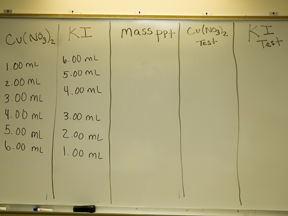 Cu(NO3)2 KI Mass ppt Cu(NO3)2 Test KI Test
1.00 mL 6.00 mL
2.00 mL 5.00 mL
3.00 mL 4.00 mL
4.00 mL 3.00 mL
5.00 mL 2.00 mL
6.00 mL 1.00 mL